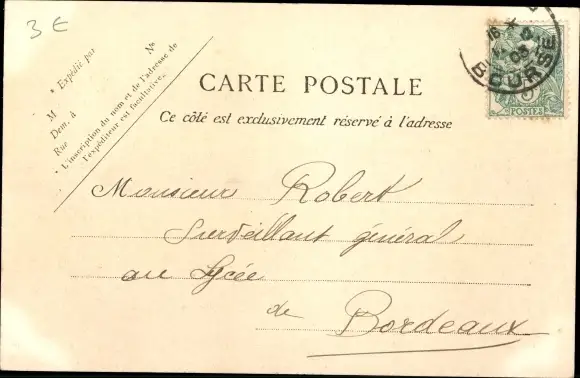 3 €
* Expédié par
M
Dem. à
Rue
N°
* L'inscription du nom et de l'adresse de
l'expéditeur est facultative.
CARTE POSTALE
Ce côté est exclusivement réservé à l'adresse
BOURSE
POSTES
Monsieur Robert
Surveillant général
au Lycée
de
Bordeaux